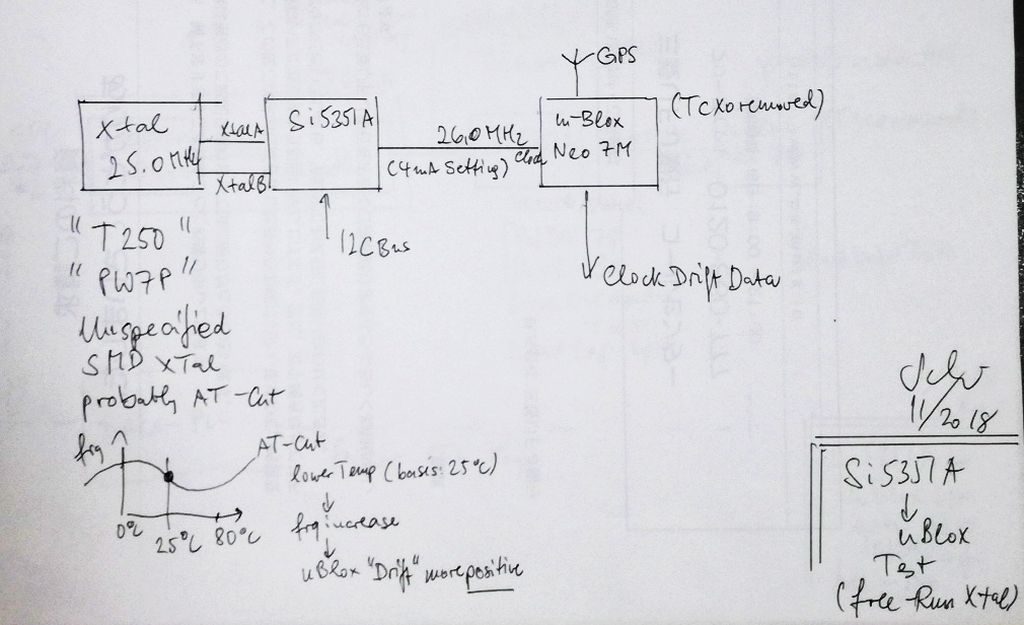 GPS
Xtal
25.0 MHz
XtalA
XtalB
Si5351A
26.0 MHz
(4mA Setting)
Clock
u-Blox
Neo 7M
(TCXO removed)
I2C Bus
Clock Drift Data
"T250"
"PW7P"
Unspecified
SMD XTal
probably AT-Cut
frq
AT-Cut
0°C
25°C
80°C
lower Temp (basis: 25°C)
frq increase
uBlox "Drift" more positive
11/2018
Si5351A
uBlox
Test
(free-Run Xtal)